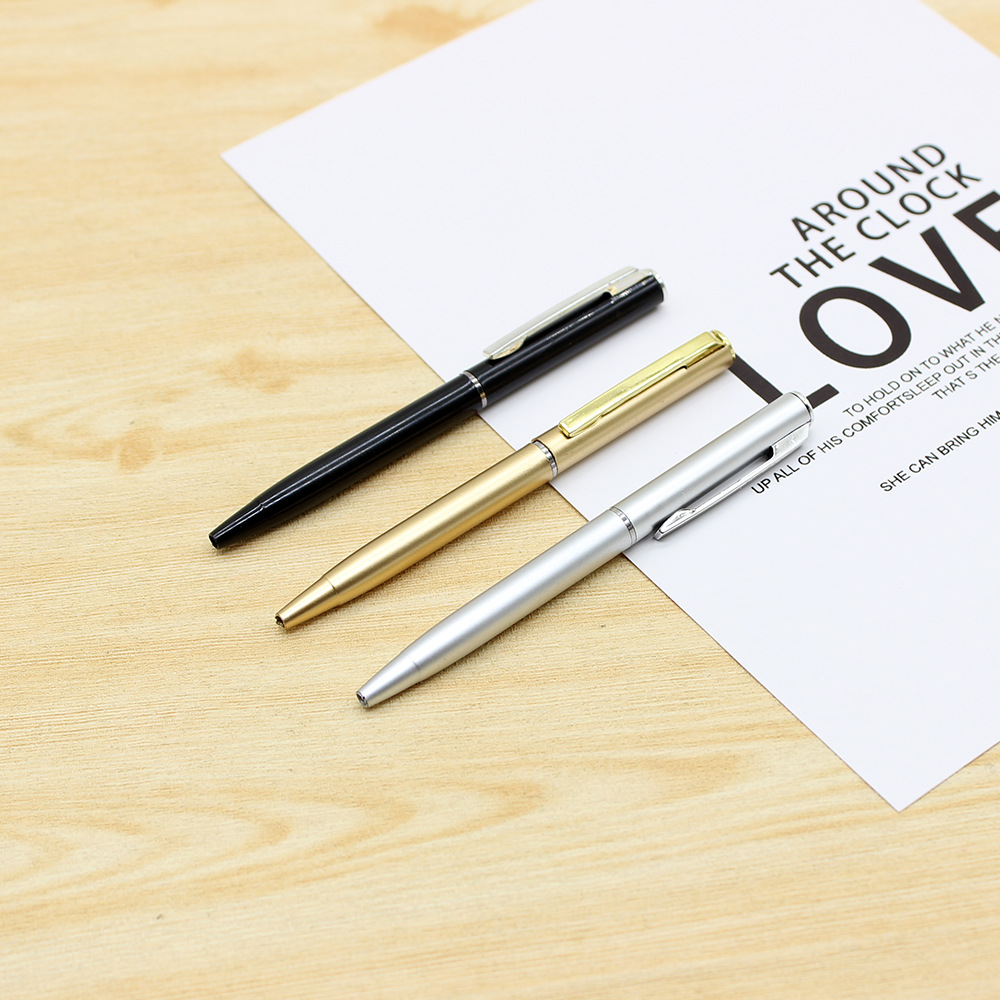 AROUND
THE CLOCK
LOVE
TO HOLD ON TO WHAT HE
UP ALL OF HIS COMFORTSLEEP OUT IN THE
THAT S THE
SHE CAN BRING HIM